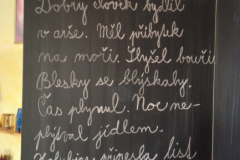 Dobrý člověk bydlil
v arše. Měl příbytek
na moři. Slyšel bouři
Blesky se blýskaly.
Čas plynul. Noc ne-
plýtval jídlem.
přinesla list